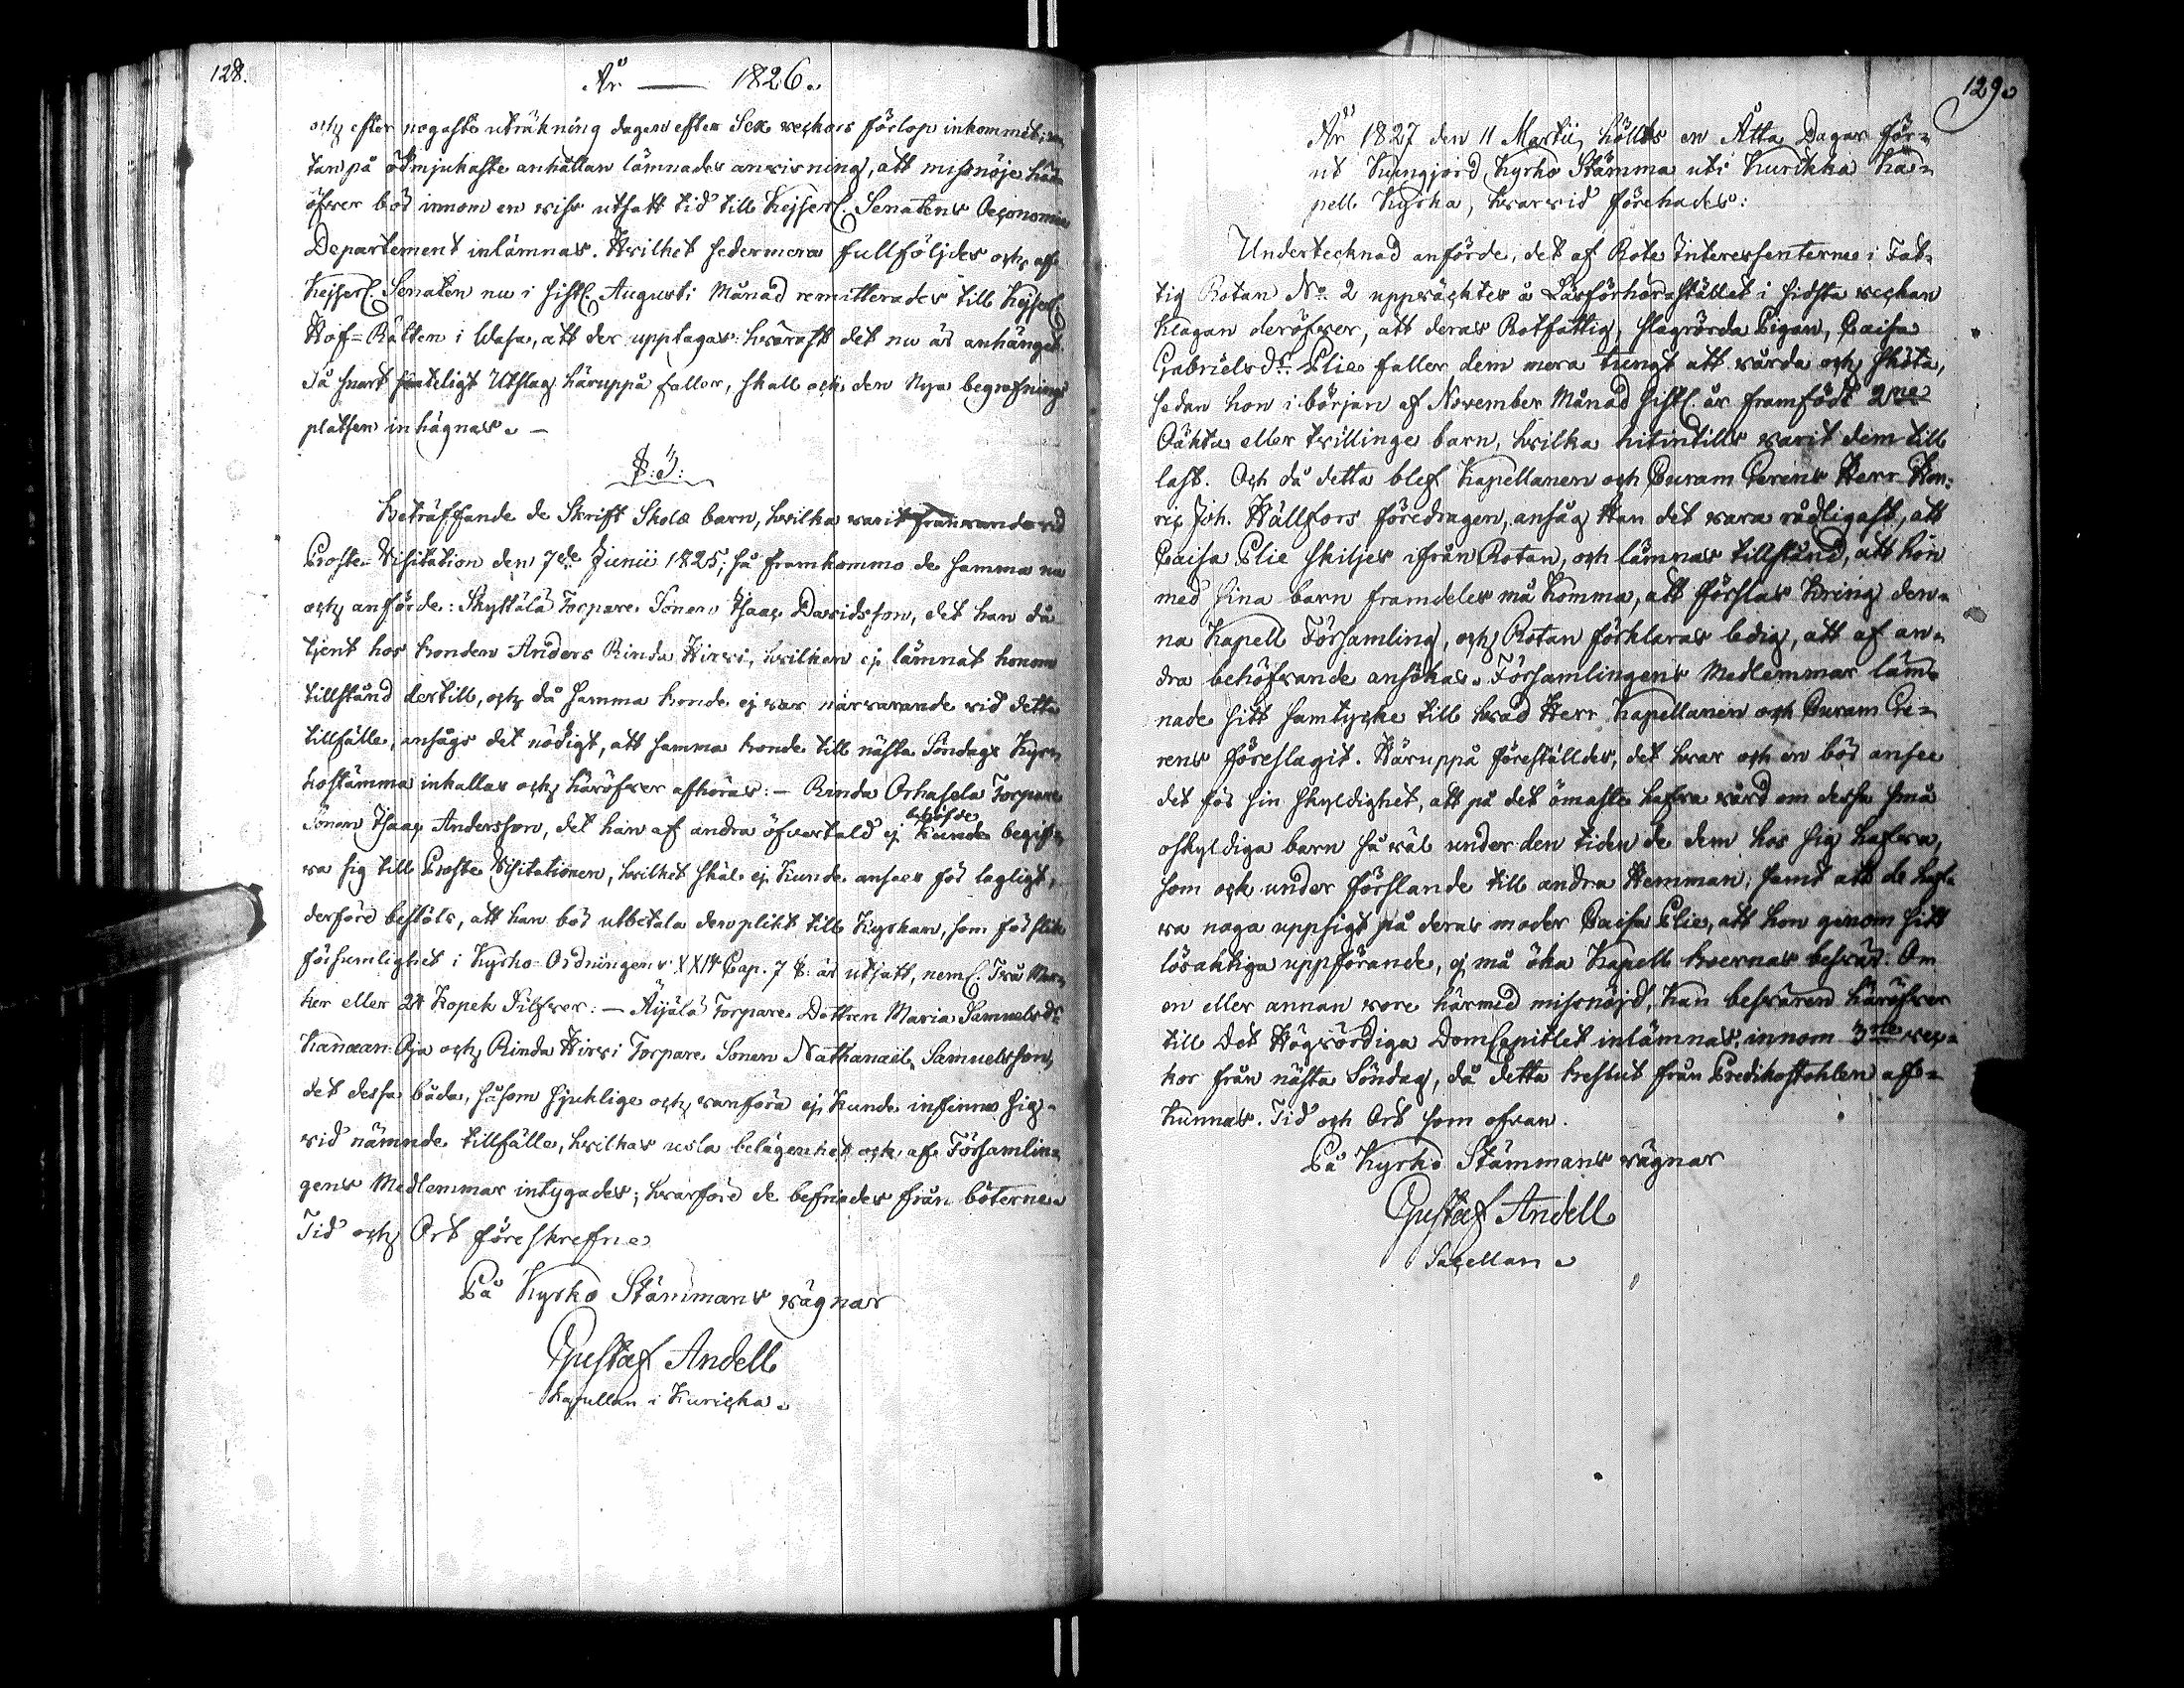 128.
År — 1826.
och efter nogaste uträkning dagen efter Sex veckors förlop inkommit;
tan på ödmjukaste anhållan lämnades anvisning, att missnöje här-
öfver bör innom en viss utsatt tid till Kejserl. Senatens Oeconomie
Departement inlämnas. Hvilket sedermera fullföljdes och af
Kejserl. Senaten nu i sistl. Augusti Månad remitterades till Kejserl.
Hof-Rätten i Wasa, att der upptagas: hvarest det nu är anhängt.
Så snart Utslag häruppå faller, skall ock den Nya begrafnings
platsen inhägnas. —
§. 3.
Beträffande de Skrift Skole barn, hvilka varit frånvarande vid
Proste-Visitation den 7de Junii 1825; så framkommo de samma nu
och anförde: Skyttälä Torpare Sonen Isaac Davidsson, det han då
tjent hos bonden Anders Rinda Hirvi, hvilken ej lämnat honom
tillstånd dertill, och då samma bonde ej var närvarande vid detta
tillfälle, ansågs det nödigt, att samma bonde till nästa Söndags Kyr-
kostämma inkallas och häröfver afhöras: — Rinda Orhasela Torpare
Sonen Isaac Andersson, det han af andra öfvertald ej kunde behöfde begif-
va sig till Proste Visitationen, hvilket skäl ej kunde anses för lagligt,
derföre beslöts, att han bör utbetala den plikt till Kyrkan, som för slik
försumlighet i Kyrko-Ordningens XXIV Cap. 7 §. är utsatt, neml. Två Mar-
ker eller 24 Kopek Silfver: — Äijälä Torpare Dottren Maria Samuelsdr
Kanaan Oja och Rinda Hirvi Torpare Sonen Nathanaël Samuelsson,
det dessa båda, såsom sjuklige och vanföra ej kunde infinna sig
vid nämnde tillfälle, hvilkas usla belägenhet ock af Församlin-
gens Medlemmar intygades; hvarföre de befriades från böterne.
Tid och Ort föreskrefne
På Kyrko Stämmans vägnar
Gustaf Andell
Kapellan i Kuricka.
129.
År 1827 den 11 Martii, hölts en Åtta Dagar för-
ut kungjord Kyrko Stämma uti Kurikka Ka-
pell Kyrka, hvarvid förehades:
Undertecknad anförde, det af Rote Interessenterne i Fat-
tig Rotan No. 2 uppväcktes å Läsförhörsstället i sidsta veckan
klagan deröfver, att deras Rotfattig, slagrörda Pigan, Caisa
Gabrielsdr. Plie faller dem mera tungt att vårda och sköta,
sedan hon i början af November Månad sistl. år framfödt 2ne
Oäkta eller tvillinge barn, hvilka hitintills varit dem till
last. Och då detta blef Kapellanen och Curam Gerens Herr Hen-
ric Joh. Hällfors föredragen, ansåg Han det vara rådligast, att
Caisa Plie skiljes ifrån Rotan, och lämnas tillstånd, att hon
med sina barn framdeles må komma, att förslas kring den-
na Kapell Församling, och Rotan förklaras ledig, att af an-
dra behöfvande ansökas. Församlingens Medlemmar läm-
nade sitt samtycke till hvad Herr Kapellanen och Curam Ge-
rens föreslagit. Häruppå föreställdes, det hvar och en bör ansee
det för sin skyldighet, att på det ömaste hafva vård om dessa små
oskyldiga barn så väl under den tiden de dem hos sig hafva,
som ock under förslande till andra Hemman; samt att de haf-
va noga uppsigt på deras moder Caisa Plie, att hon genom sitt
lösaktiga uppförande, ej må öka Kapell boernas besvär. Om
en eller annan vore härmed missnöjd, kan besvären häröfver
till Det Högvördiga DomCapitlet inlämnas, innom 3ne vec-
kor från nästa Söndag, då detta beslut från Predikostohlen af-
kunnas. Tid och Ort som ofvan.
På Kyrko Stämmans vägnar
Gustaf Andell
Sacellan.